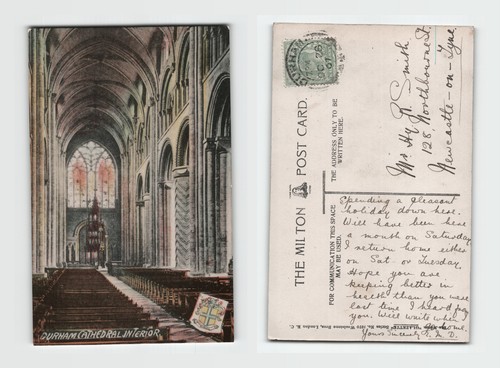 DURHAM CATHEDRAL INTERIOR
DURHAM
07
THE MILTON POST CARD.
THE ADDRESS ONLY TO BE
WRITTEN HERE.
FOR COMMUNICATION THIS SPACE
MAY BE USED.
Mrs Hy R. Smith
128, Northbourne St.
Newcastle-on-Tyne
Spending a pleasant
holiday down here.
Will have been here
a month on Saturday
I return home either
on Sat. or Tuesday.
Hope you are
keeping better in
health than you were
last time I heard from
you. Will write when I
get home.
Yours Sincerely
Woolstone Bros., London E. C.